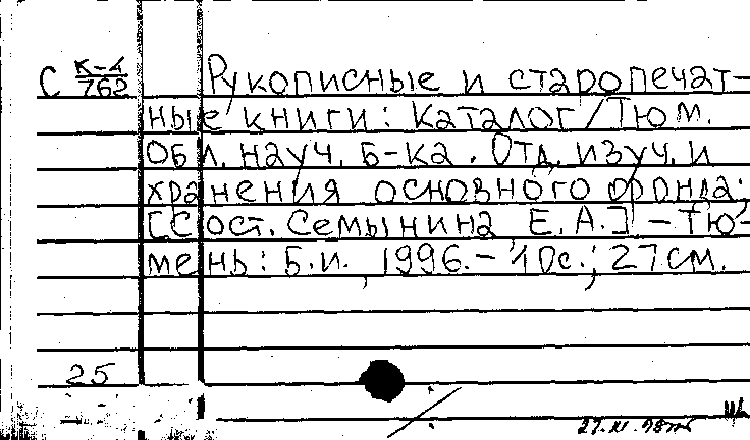 С К-4/762 Рукописные и старопечат-
ные книги: Каталог/Тюм.
обл. науч. б-ка. Отд. изуч. и
хранения основного фонда;
[Сост. Семынина Е. А.] - Тю-
мень: Б.и., 1996. - 10с.; 27см.
25